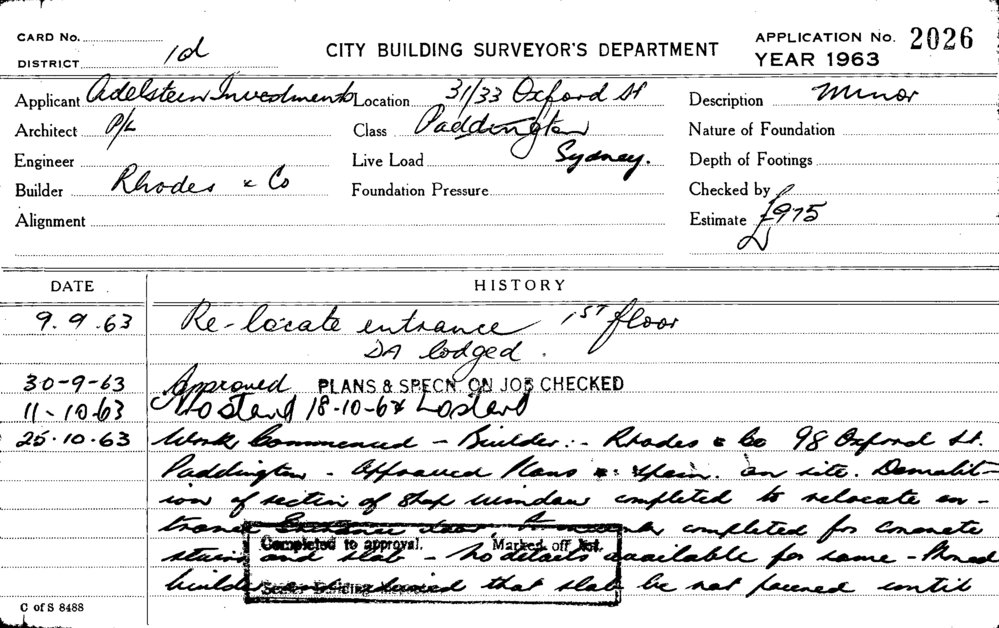 CARD No.
DISTRICT 1d
CITY BUILDING SURVEYOR'S DEPARTMENT
APPLICATION No. 2026
YEAR 1963
Applicant Adelstein Investments
Location 31/33 Oxford St
Description Minor
Architect P/L
Class Paddington
Nature of Foundation
Engineer
Live Load Sydney.
Depth of Footings
Builder Rhodes & Co
Foundation Pressure
Checked by
Alignment
Estimate £975
DATE HISTORY
9.9.63 Re-locate entrance 1ST floor
DA lodged.
30-9-63 Approved PLANS & SPECN. ON JOB CHECKED
11-10-63 18-10-63
25.10.63 Work Commenced - Builder:- Rhodes & Co 98 Oxford St.
Paddington - Approved Plans & Specn. on site. Demolit-
ion of section of shop window completed to relocate en-
trance Entrance door completed for concrete
stairs and slab - no details available for same - Phoned
builder that slab be not poured until
Completed to approval. Marked off list.
C of S 8488